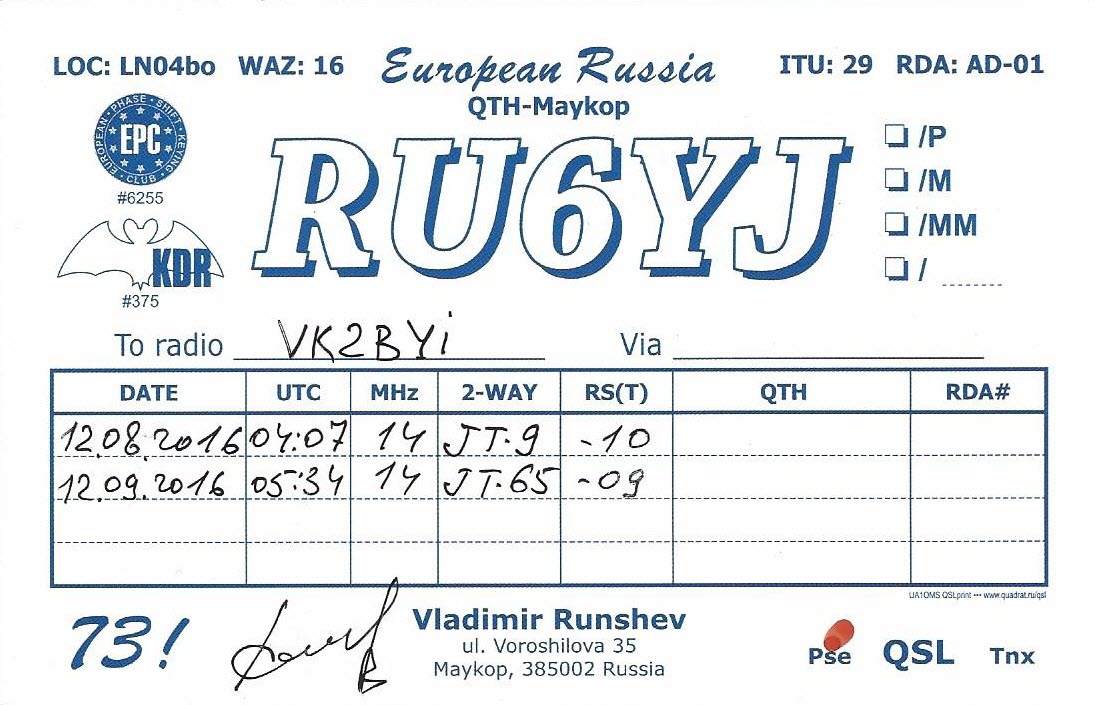 LOC: LN04bo WAZ: 16 European Russia ITU: 29 RDA: AD-01
QTH-Maykop
EUROPEAN · PHASE · SHIFT · KEYING · CLUB
EPC
#6255
RU6YJ
/P
/M
/MM
/
KDR
#375
To radio VK2BYi Via
DATE UTC MHz 2-WAY RS(T) QTH RDA#
12.08.2016 04:07 14 JT-9 -10
12.09.2016 05:34 14 JT-65 -09
UA1OMS QSLprint ••• www.quadrat.ru/qsl
73!
Vladimir Runshev
ul. Voroshilova 35
Maykop, 385002 Russia
Pse QSL Tnx